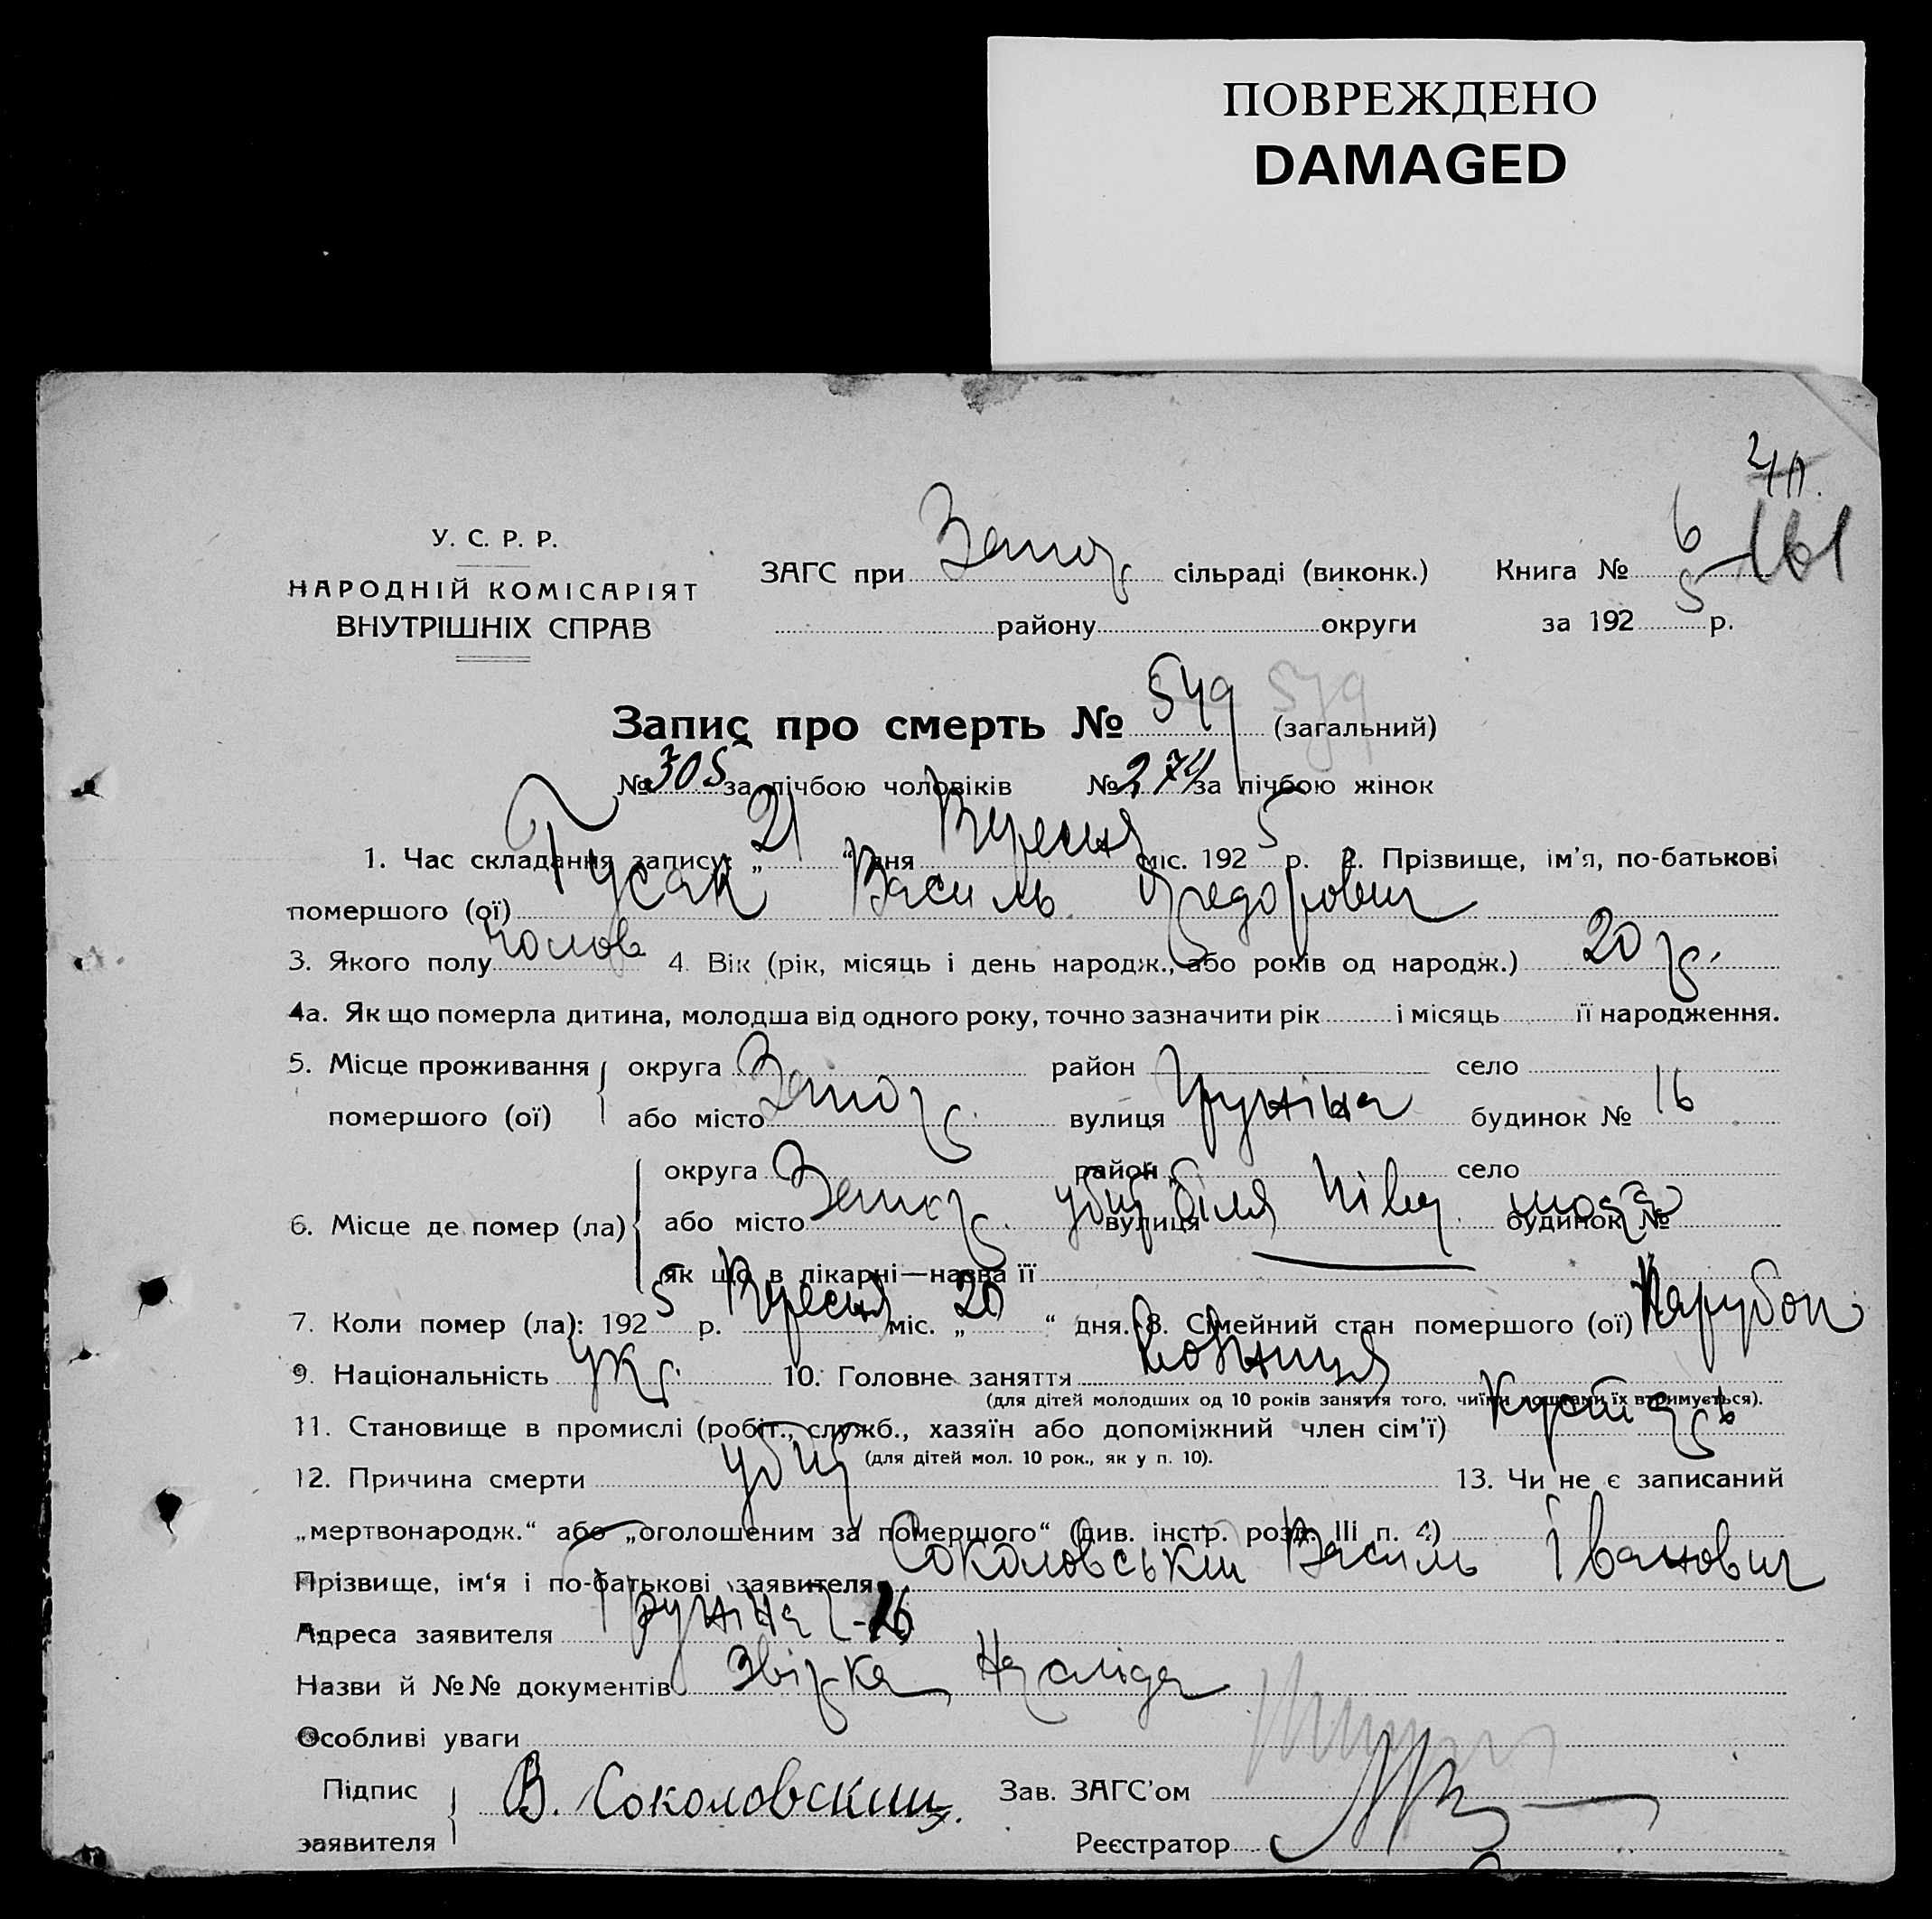 ПОВРЕЖДЕНО
DAMAGED
У. С. Р. Р.
НАРОДНІЙ КОМІСАРІЯТ
ВНУТРІШНІХ СПРАВ
ЗАГС при Запор. сільраді (виконк.) Книга № 6 161
району округи за 192 5 р.
Запис про смерть № 579 579 (загальний)
№ 305 за лічбою чоловіків № 274 за лічбою жінок
1. Час складання запису: „ 21 “ дня Вересня міс. 192 5 р. 2. Прізвище, ім’я, по-батькові
помершого (ої) Гусак Василь Федорович
3. Якого полу чолов 4. Вік (рік, місяць і день народж., або років од народж.) 20 р.
4а. Як що померла дитина, молодша від одного року, точно зазначити рік і місяць її народження.
5. Місце проживання округа Запор. район село
помершого (ої) або місто вулиця Грязнова будинок № 16
округа Запор. район село
6. Місце де помер (ла) або місто убит біля вулиця будинок №
як що в лікарні—назва її
7. Коли помер (ла): 192 5 р. Вересня міс. „ 20 “ дня. 8. Сімейний стан помершого (ої) Парубок
9. Національність укр. 10. Головне заняття
(для дітей молодших од 10 років заняття того, чиїми коштами їх втримується).
11. Становище в промислі (робіт., служб., хазяїн або допоміжний член сім’ї)
(для дітей мол. 10 рок., як у п. 10).
12. Причина смерти убит 13. Чи не є записаний
„мертвонародж.“ або „оголошеним за помершого“ (див. інстр. розд. III п. 4)
Прізвище, ім‘я і по-батькові заявителя Соколовськи Василь Іванович
Адреса заявителя
Назви й №№ документів
Особливі уваги
Підпис В. Соколовский Зав. ЗАГС’ом
заявителя Реєстратор